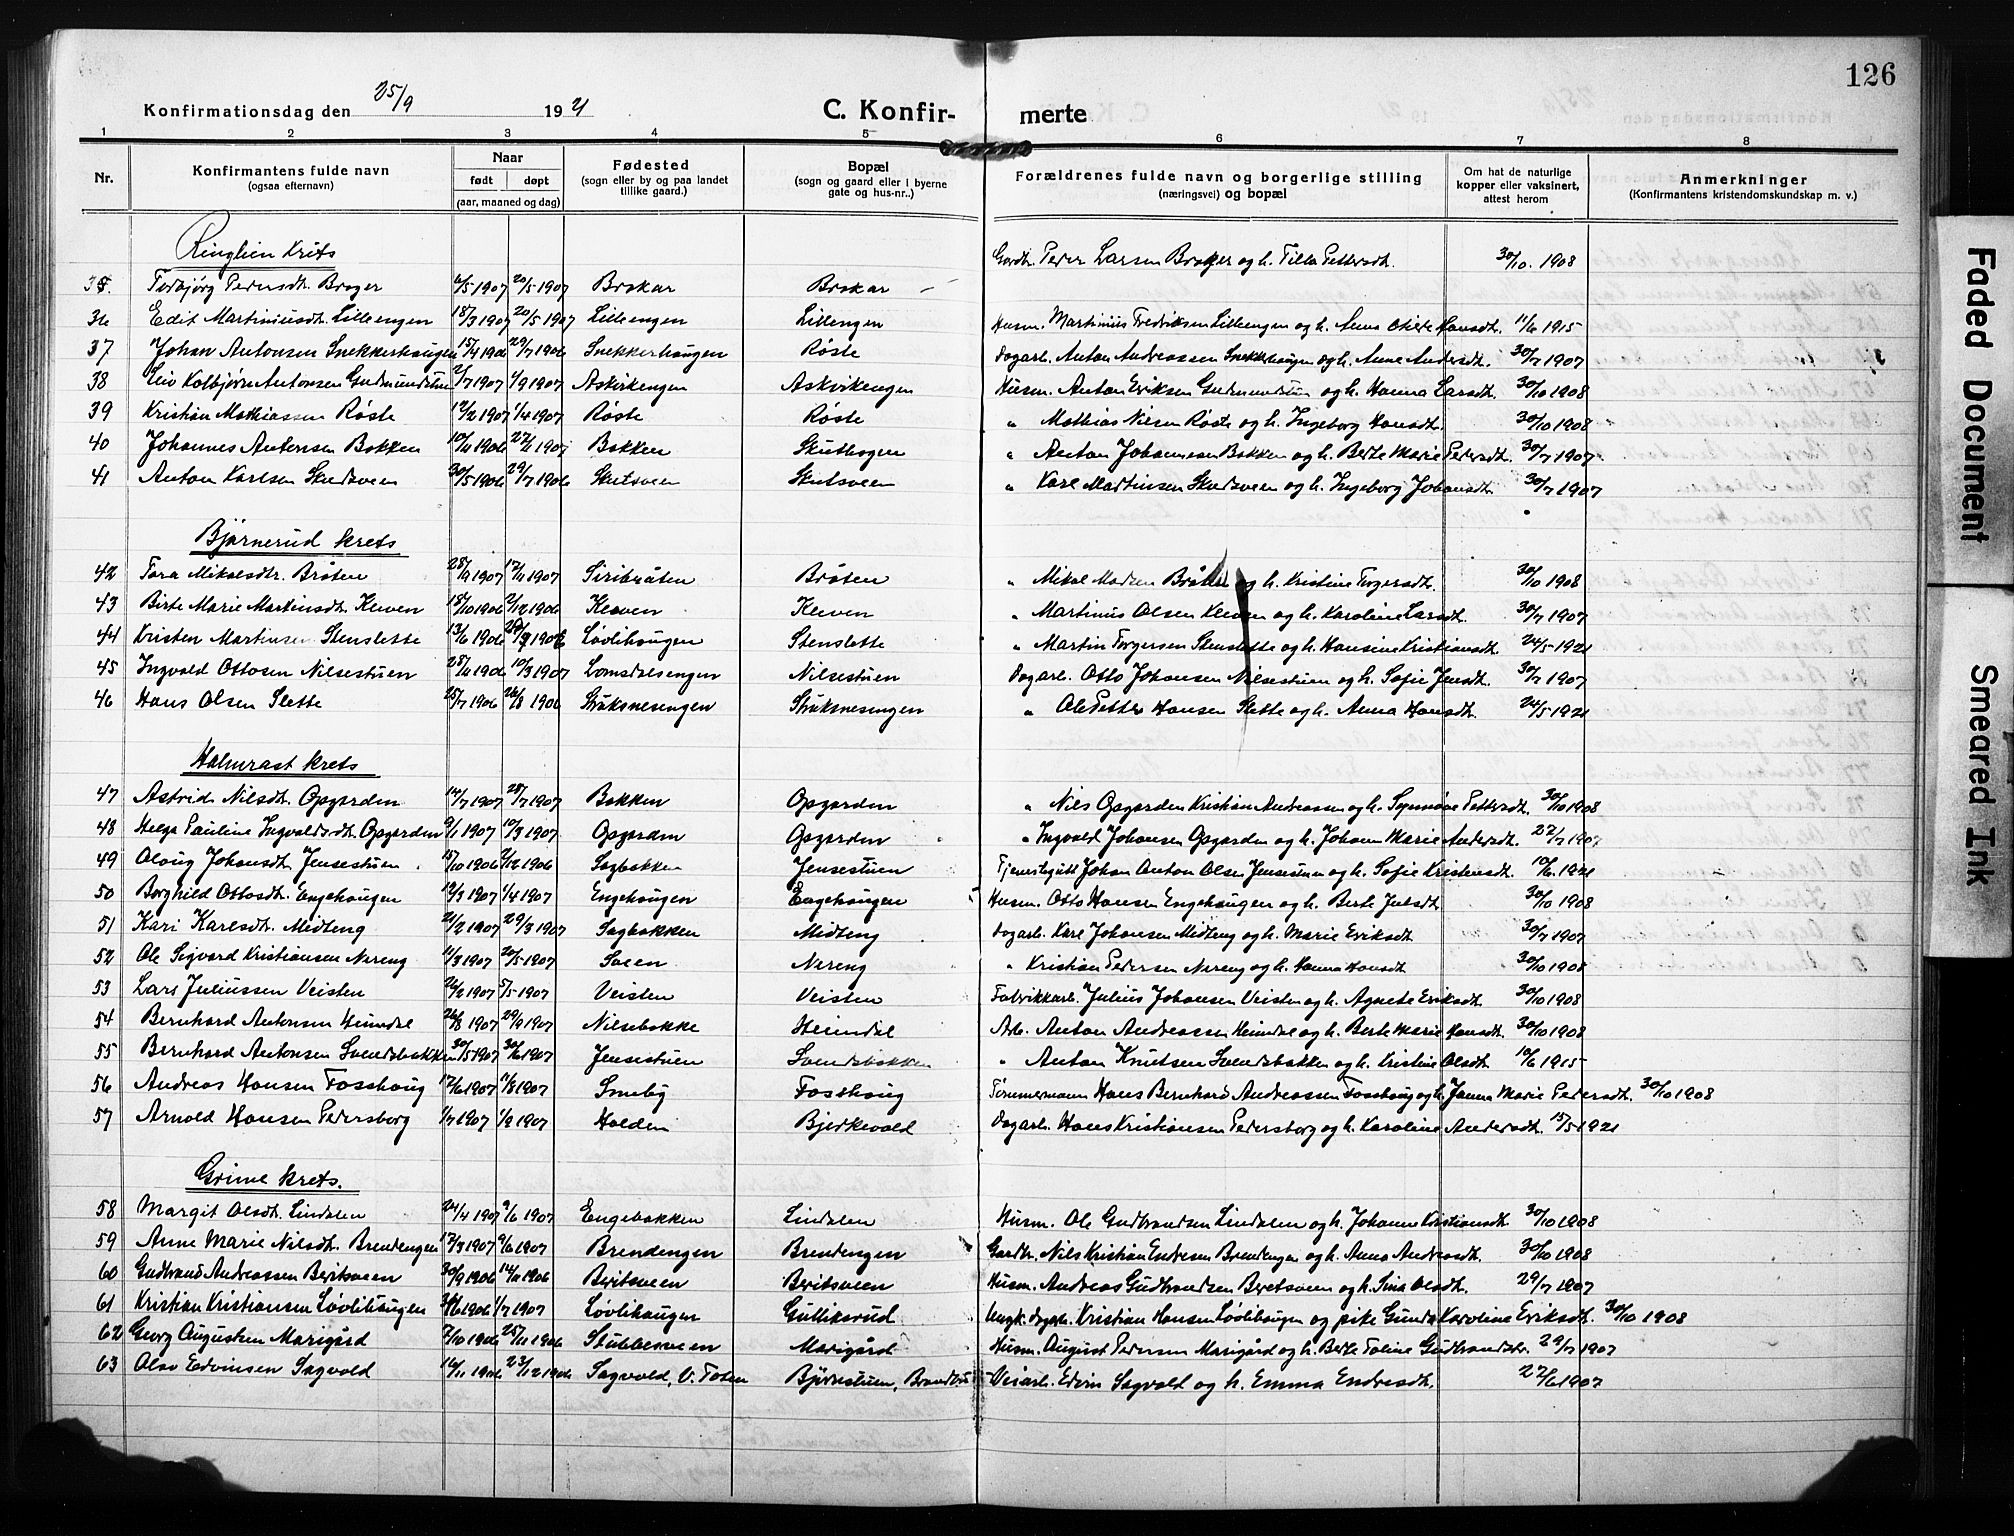 126
Konfirmationsdag den 25/9 1921
C. Konfir- merte
1 2 3 4 5 6 7 8
Nr.
Konfirmantens fulde navn (ogsaa efternavn)
Naar født døpt (aar, maaned og dag)
Fødested (sogn eller by og paa landet tillike gaard.)
Bopæl (sogn og gaard eller i byerne gate og hus-nr..)
Forældrenes fulde navn og borgerlige stilling (næringsvei) og bopæl
Om hat de naturlige kopper eller vaksinert, attest herom
Anmerkninger (Konfirmantens kristendomskundskap m. v.)
Ringlien Krets
35 Torbjørg Pedersdt. Brager 6/5 1907 20/5 1907 Brakar Brakar Gardbr. Peder Larsen Braker og h. Tilla Pettersdt. 30/10. 1908
36 Edit Martiniusdt. Lillengen 18/3 1907 20/5 1907 Lillengen Lillengen Husm. Martinius Fredriksen Lillengen og h. Anna Hansdt. 11/6 1915
37 Johan Antonsen Snekkerhaugen 15/4 1906 29/7 1906 Snekkerhaugen Røste Dagarb. Anton Andreassen Snekkerhaugen og h. Anne Andersdt. 30/7 1907
38 Kolbjørn Antonsen Gudmundstuen 2/7 1907 1/9 1907 Askvikengen Askvikengen Husm. Anton Eriksen Gudmundstuen og h. Hanna Larsdt. 30/10 1908
39 Kristian Mathiassen Røste 12/2 1907 1/4 1907 Røste Røste " Mathias Nilsen Røste og h. Ingeborg Hansdt. 30/10 1908
40 Johannes Antonsen Bakken 10/11 1906 1907 Bakken Skuthagen " Anton Johannesen Bakken og h. Berte Marie Pedersdt. 30/7 1907
41 Anton Karlsen Skutsveen 30/5 1906 29/7 1906 Skutsveen Skutsveen " Karl Martinsen Skutsveen og h. Ingeborg Johansdt. 30/7 1907
Bjørnerud krets
42 Tora Mikalsdtr. Bråten 28/9 1907 17/11 1907 Siribråten Bråten " Mikal Madsen Bråten og h. Kristine Torgersdt. 30/10 1908
43 Birte Marie Martinsdt. Kleven 18/10 1906 2/12 1906 Kleven Kleven " Martinus Olsen Kleven og h. Karoline Larsdt. 30/7 1907
44 Kristen Martinsen Stenslette 13/6 1906 1906 Løvlihaugen Stenslette " Martin Torgersen Stenslette og h. Hansine Kristiansdt. 24/5 1921
45 Ingvald Ottosen Nilsestuen 28/11 1906 10/3 1907 Lomsdalsengen Nilsestuen Dagarb. Otto Johansen Nilsestuen og h. Sofie Jensdt. 30/7 1907
46 Hans Olsen Slette 25/7 1906 26/8 1906 Struksnesengen Struksnesengen " Ole Petter Hansen Slette og h. Anna Hansdt. 24/5 1921
Halmrast krets
47 Astrid Nilsdt. Opgarden 14/7 1907 28/7 1907 Bakken Opgarden " Nils Opgarden Kristian Andreassen og h. Synnøve Pettersdt. 30/10 1908
48 Helga Pauline Ingvaldsdt. Opgarden 9/1 1907 10/3 1907 Opgarden Opgarden " Ingvald Johansen Opgarden og h. Johanne Marie Andersdt. 22/7 1907
49 Olaug Johansdt. Jensestuen 15/10 1906 2/12 1906 Sagbakken Jensestuen Tjenestegutt Johan Anton Olsen Jensestuen og h. Sofie Kristensdt. 10/6 1921
50 Borghild Ottosdt. Engehaugen 12/3 1907 1/4 1907 Engehaugen Engehaugen Husm. Otto Hansen Engehaugen og h. Berte Julsdt. 30/10 1908
51 Kari Karlsdt. Midteng 21/2 1907 29/3 1907 Sagbakken Midteng Dagarb. Karl Johansen Midteng og h. Marie Eriksdt. 30/7 1907
52 Ole Sigvard Kristiansen Nereng 11/3 1907 20/5 1907 Sveen Nereng " Kristian Pedersen Nereng og h. Hanna Hansdt 30/10 1908
53 Lars Juliussen Veisten 26/2 1907 5/5 1907 Veisten Veisten Fabrikkarb. Julius Johansen Veisten og h. Agnete Eriksdt. 30/10 1908
54 Bernhard Antonsen Heimdal 26/8 1907 29/9 1907 Nilsebakke Heimdal Arb. Anton Andreassen Heimdal og h. Berte Marie Hansdt. 30/10 1908
55 Bernhard Antonsen Svendsbakken 30/5 1907 30/6 1907 Jensestuen Svendsbakken " Anton Knutsen Svendsbakken og h. Kristine Olsdt. 10/6 1915
56 Andreas Hansen Fosshaug 17/6 1907 11/8 1907 Smeby Fosshaug Tømmermann Hans Bernhard Andreassen Fosshaug og h. Janna Marie Pedersdt. 30/10 1908
57 Arnold Hansen Pedersborg 1/7 1907 1/9 1907 Halden Bjerkevold Dagarb. Hans Kristiansen Pedersborg og h. Karoline Andersdt. 15/5 1921
Grime krets.
58 Margit Olsdt. Lindalen 24/4 1907 9/6 1907 Engebakken Lindalen Husm. Ole Gudbrandsen Lindalen og h. Johanne Kristiansdt. 30/10 1908
59 Anne Marie Nilsdt. Brendengen 17/3 1907 9/6 1907 Brendengen Brendengen Gardbr. Nils Kristian Endresen Brendengen og h. Anna Andreasdt. 30/10 1908
60 Gudbrand Andreassen Beritsveen 30/9 1906 14/11 1906 Beritsveen Beritsveen Husm. Andreas Gudbrandsen Beretsveen og h. Sina Olsdt. 29/7 1907
61 Kristian Kristiansen Løvlihaugen 1906 1/7 1907 Løvlihaugen Gulliksrud Ungk. dagarb. Kristian Hansen Løvlihaugen og pike Gunda Karoline Eriksdt. 30/10 1908
62 Georg Augustsen Marigård 7/10 1906 25/11 1906 Stubbesveen Marigård Husm. August Pedersen Marigård og h. Berte Toline Gudbrandsdtr. 29/7 1907
63 Olav Edvinsen Sagvold 16/11 1906 23/12 1906 Sagvold, V. Toten Bjørnstuen, Brandbu Veiarb. Edvin Sagvold og h. Emma Endresdt. 27/6 1907
Faded Document
Smeared Ink